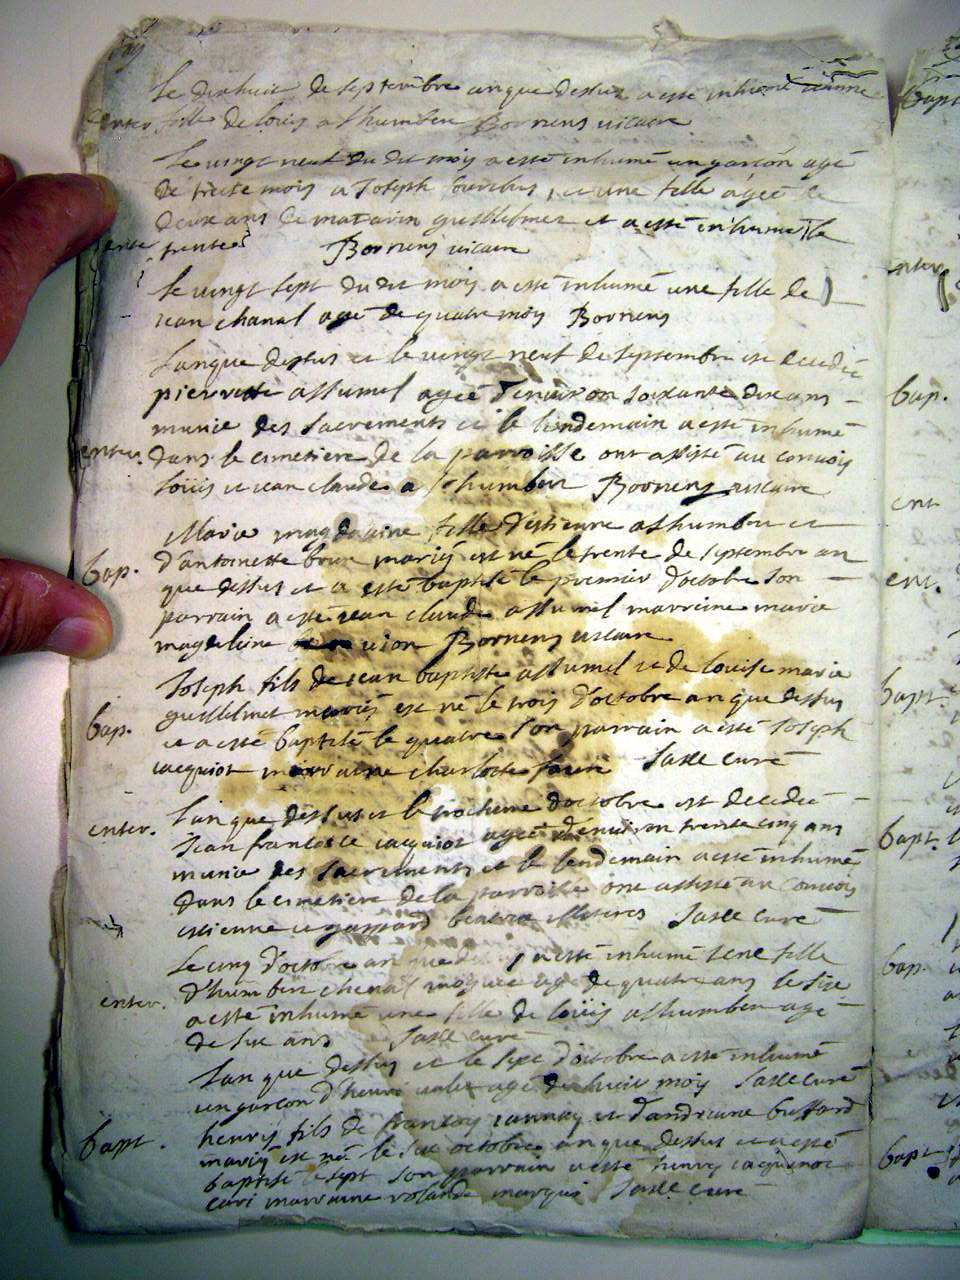 Le dixhuict de septembre an que dessus a esté inhumé jeanne
enter. fille de louis alhumbert Bornens vicaire
Le vingt neuf du dit mois a esté inhumé un garçon agé
de treise mois a Joseph et une fille agée de
deux ans de maturin guillelmet et a esté inhumé le
enter. trente Bornens vicaire
Le vingt sept du dit mois a esté inhumé une fille de
jean chanal agé de quatre mois Bornens
Lan que dessus et le vingt neuf de septembre est decedée
pierrette allumel agée d'environ soixante dix ans
munie des sacrements et le lendemain a esté inhumé
enter. dans le cimetiere de la parroisse ont assisté au convois
Loüis et jean claude alhumbert Bornens vicaire
Marie magdelaine fille d'estienne alhumbert et
bap. d'antoinette mariés est né le trente de septembre an
que dessus et a esté baptisé le premier d'octobre son
parrain a esté jean claude allumel marreine marie
magdeleine vion Bornens vicaire
Joseph fils de jean baptiste allumel et de louise marie
bap. guillelmet mariés est né le trois d'octobre an que dessus
et a esté baptisé le quatre son parrain a esté Joseph
jacquiot marraine charlotte favre Salle curé
enter. L'an que dessus et le troisieme d'octobre est decedée
Jean francoise jacquiot agée d'environ trente cinq ans
munie des sacrements et le lendemain a esté inhumé
dans le cimetiere de la parroisse ont assisté au convois
estienne et gaspard Salle curé
Le cinq d'octobre an que dessus a esté inhumé une fille
enter. d'humbert chanal agé de quatre ans le six
a esté inhumé une fille de loüis alhumbert agé
de six ans Salle curé
L'an que dessus et le sept d'octobre a esté inhumé
un garçon d'henri agé de huict mois Salle curé
bapt. henry fils de françois jannay et d'andreane buffard
mariés est né le six octobre an que dessus et a esté
baptisé le sept son parrain a esté henry jacquinot
marraine rolande marquis Salle curé
bapt
enter.
bap.
ent
ent.
bapt.
bapt.
bap.
bapt